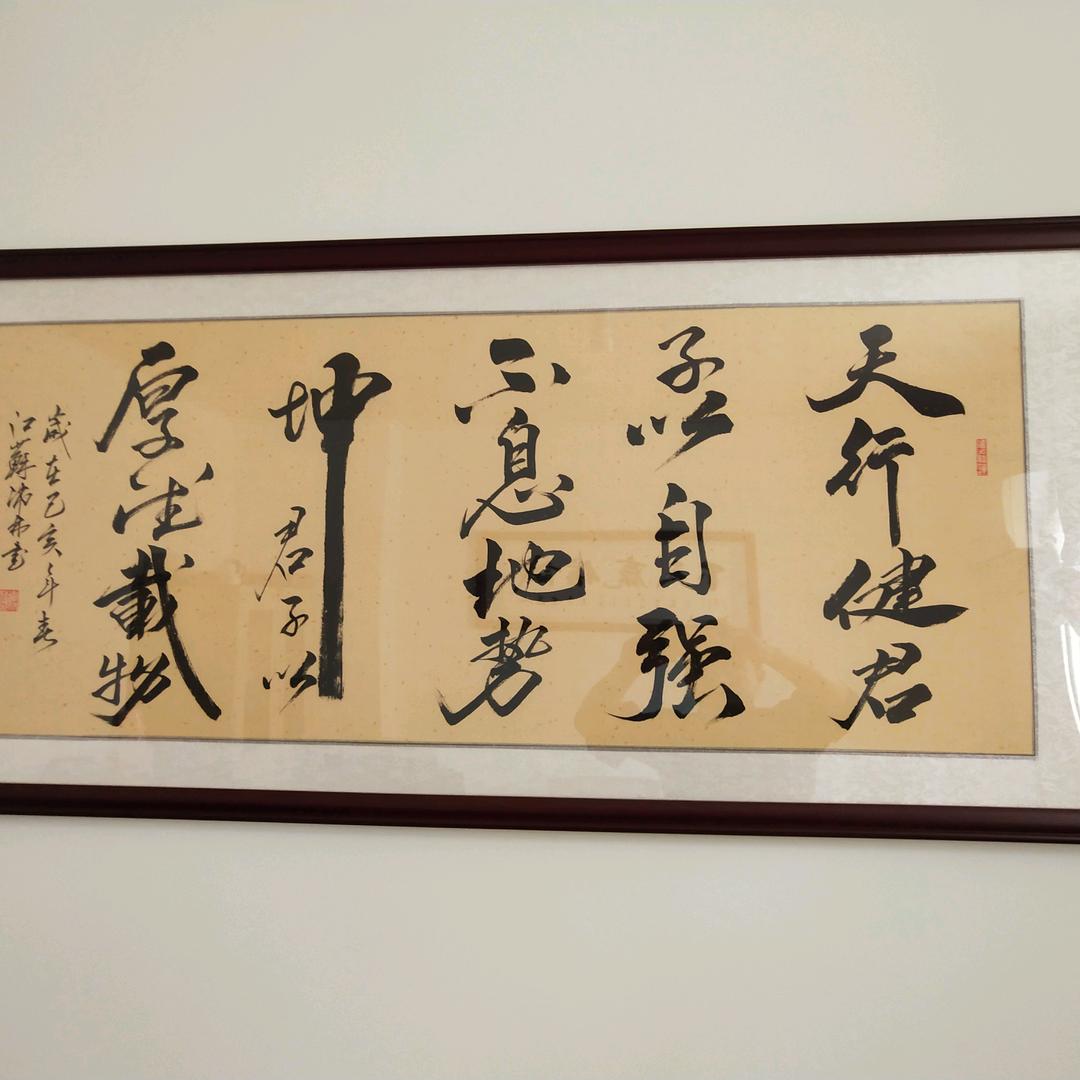 天行健君
子以自强
不息地势
坤君子以
厚德载物
岁在己亥年春
江苏沛布书